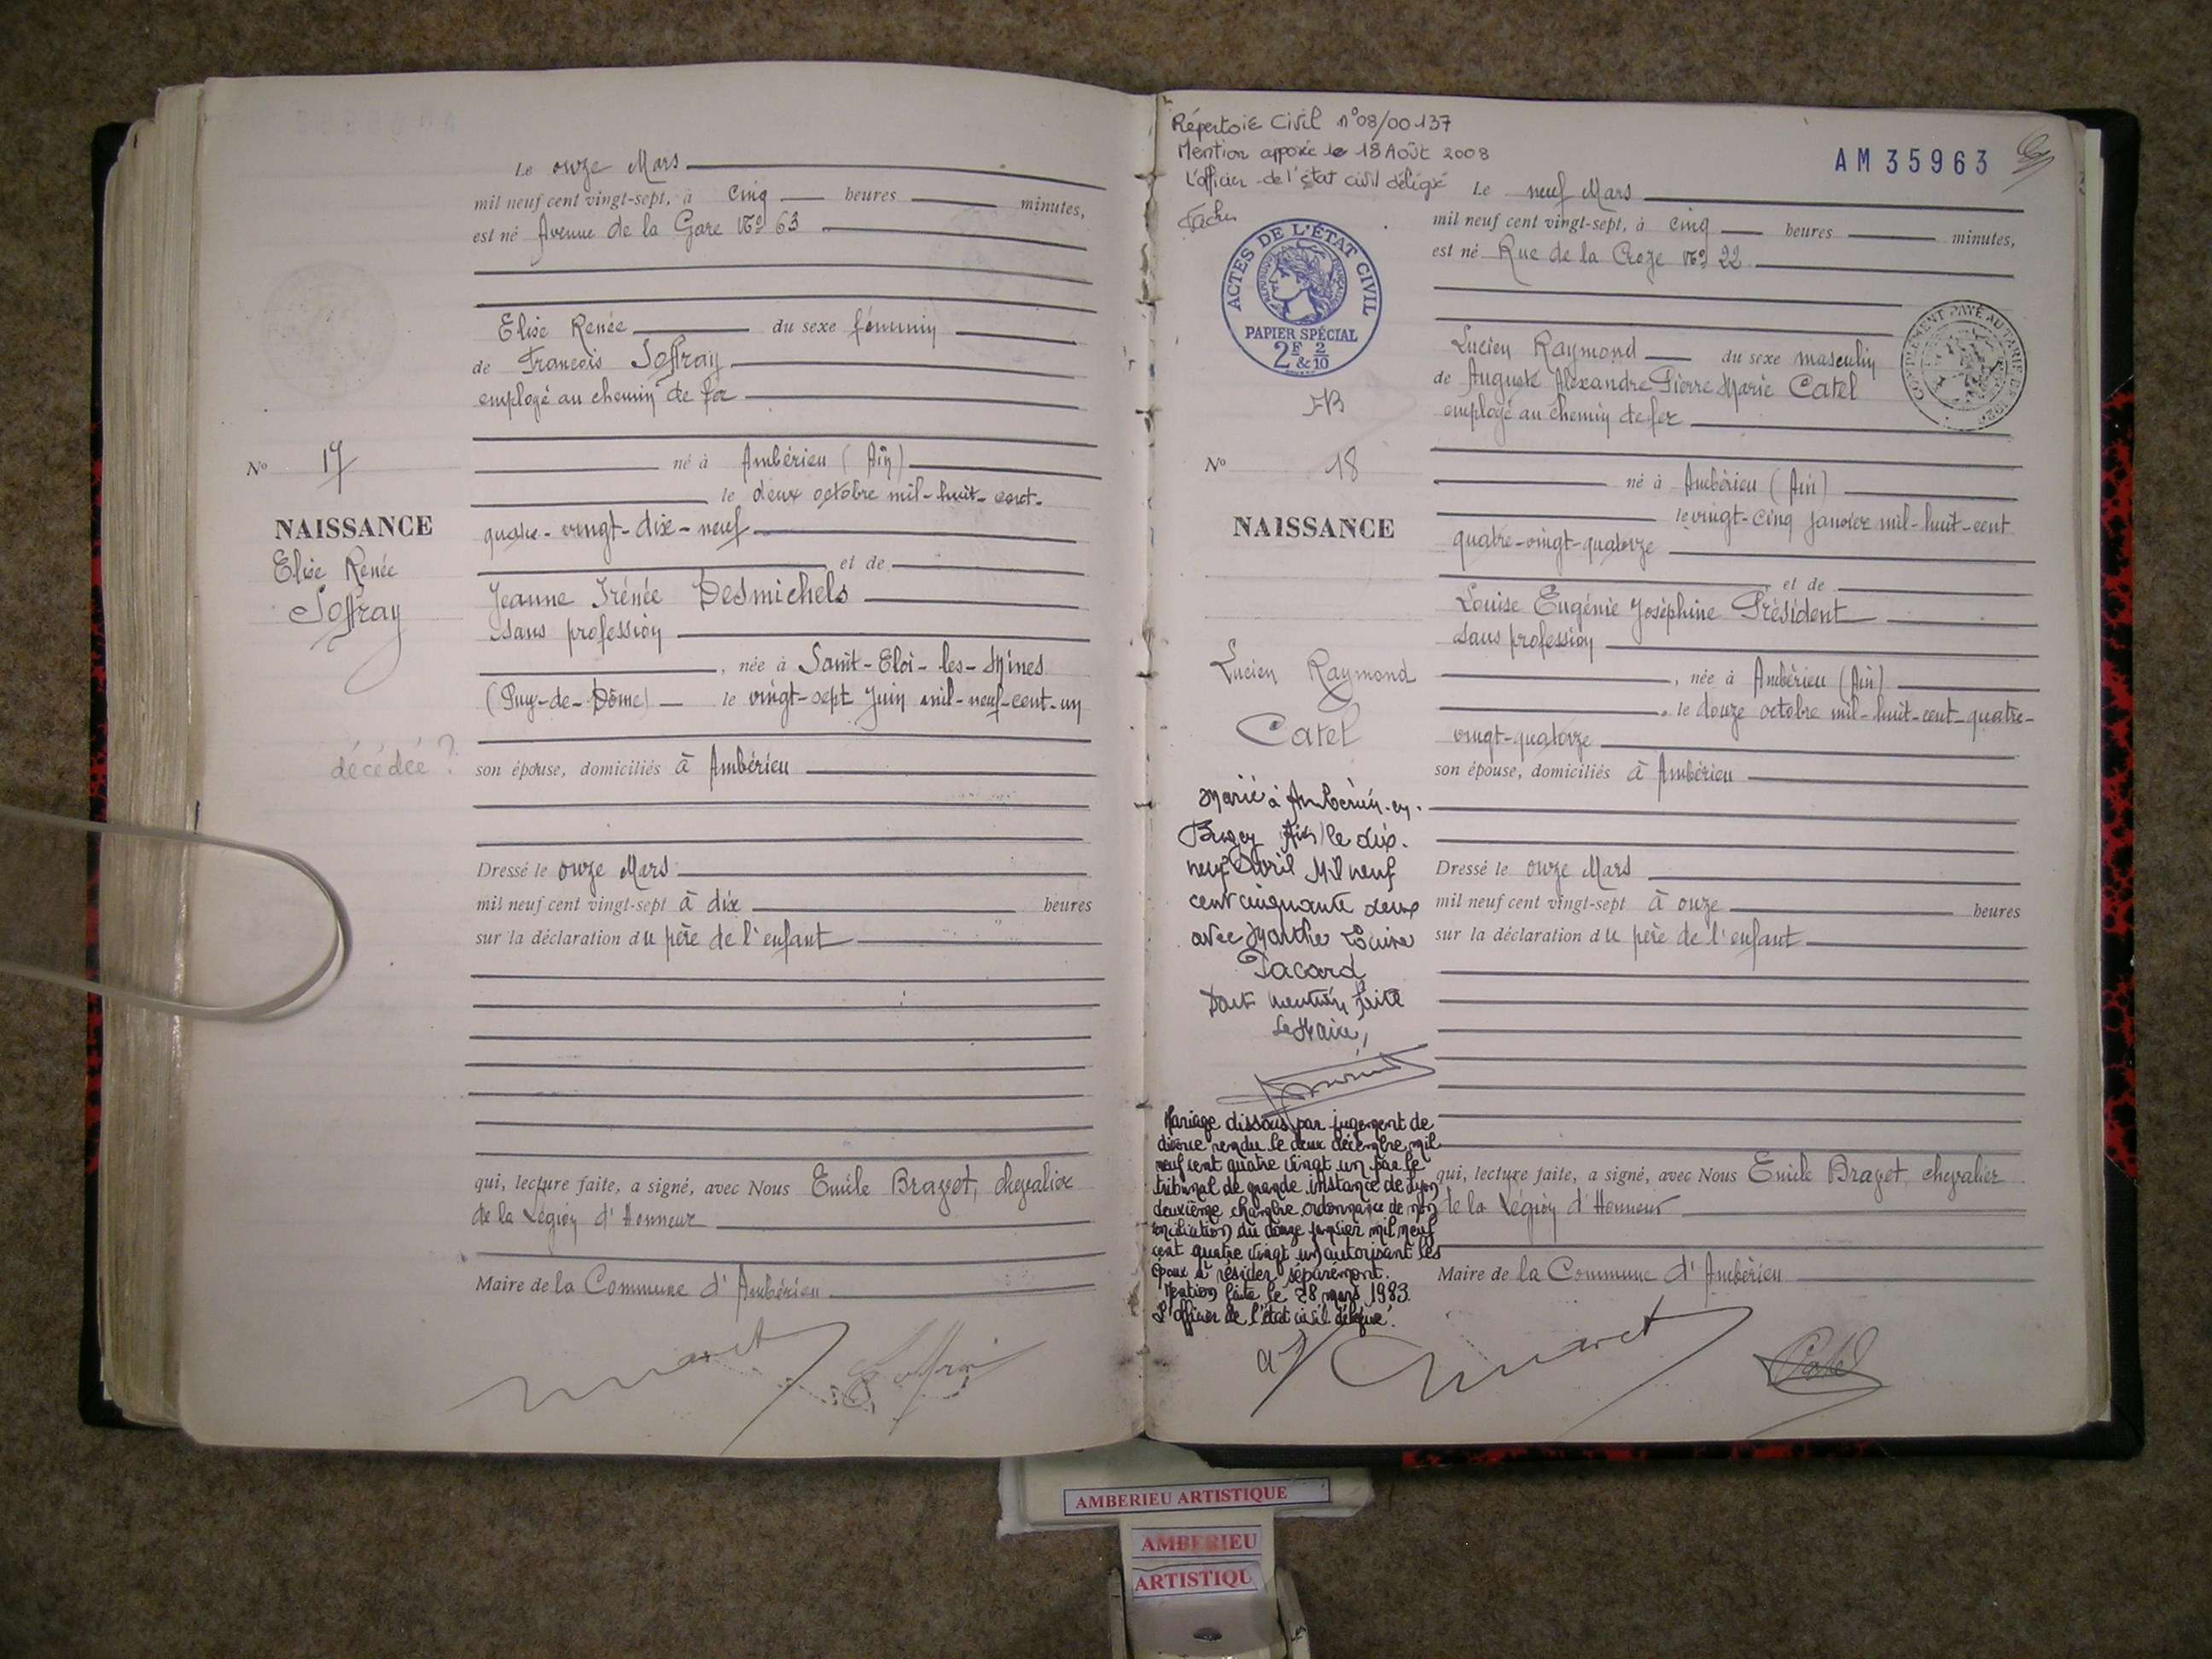 Le onze Mars
mil neuf cent vingt-sept, à cinq heures minutes,
est né Avenue de la Gare No 63
Elise Renée du sexe féminin
de François Joffray
employé au chemin de fer
né à Ambérieu (Ain)
le deux octobre mil-huit-cent-
quatre-vingt-dix-neuf
et de
Jeanne Irénée Desmichels
sans profession
, née à Saint-Eloi-les-Mines
(Puy-de-Dôme) le vingt-sept Juin mil-neuf-cent-un
son épouse, domiciliés à Ambérieu
Dressé le onze Mars
mil neuf cent vingt-sept à dix heures
sur la déclaration du père de l'enfant
qui, lecture faite, a signé, avec Nous Emile Bravet, chevalier
de la Légion d'Honneur
Maire de la Commune d'Ambérieu
No 17
NAISSANCE
Elise Renée
Joffray
décédée ?
Répertoire Civil n°08/00137
Mention apposée le 18 Août 2008
L'officier de l'état civil délégué
ACTES DE L'ÉTAT CIVIL
PAPIER SPÉCIAL
2F & 2/10
No 18
NAISSANCE
Lucien Raymond
Catel
Marié à Ambérieu-en-
Bugey (Ain) le dix-
neuf Avril Mil neuf
cent cinquante deux
avec Marthe Louise
Pacard
Dont mention faite
Le Maire,
Mariage dissous par jugement de
divorce rendu le deux décembre mil
neuf cent quatre vingt un par le
tribunal de grande instance de Lyon
deuxième chambre ordonnance de non
conciliation du douze janvier mil neuf
cent quatre vingt un autorisant les
époux à résider séparément.
Mention faite le 28 mars 1983.
L'officier de l'état civil délégué.
AM 35963
Le neuf Mars
mil neuf cent vingt-sept, à cinq heures minutes,
est né Rue de la Croze No 22
Lucien Raymond du sexe masculin
de Auguste Alexandre Pierre Marie Catel
employé au chemin de fer
né à Ambérieu (Ain)
le vingt-cinq janvier mil-huit-cent
quatre-vingt-quatorze
et de
Louise Eugénie Joséphine Président
sans profession
, née à Ambérieu (Ain)
, le douze octobre mil-huit-cent-quatre-
vingt-quatorze
son épouse, domiciliés à Ambérieu
Dressé le onze Mars
mil neuf cent vingt-sept à onze heures
sur la déclaration du père de l'enfant
qui, lecture faite, a signé, avec Nous Emile Bravet, chevalier
de la Légion d'Honneur
Maire de la Commune d'Ambérieu
Catel
AMBERIEU ARTISTIQUE
AMBERIEU
ARTISTIQU